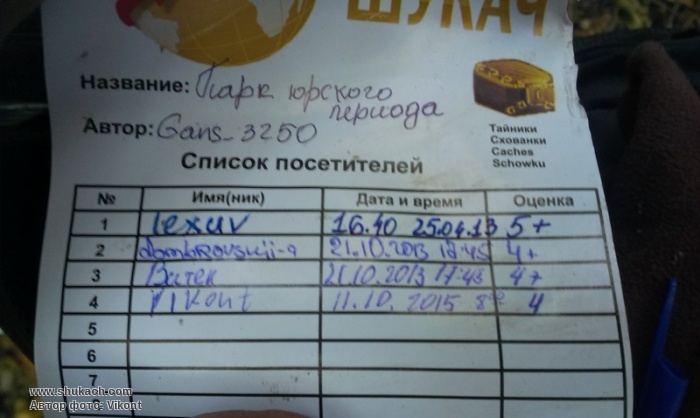 ШУКАЧ
Название: Парк юрского
периода
Автор: Gans_3250
Тайники
Схованки
Caches
Schowku
Список посетителей
№ Имя(ник) Дата и время Оценка
1 lexuv 16.40 25.04.13 5+
2 dombrovskii-a 21.10.2013 4+
3 Витек 21.10.2013 4+
4 Vikont 11.10.2015 4
5
6
7
www.shukach.com
Автор фото: Vikont